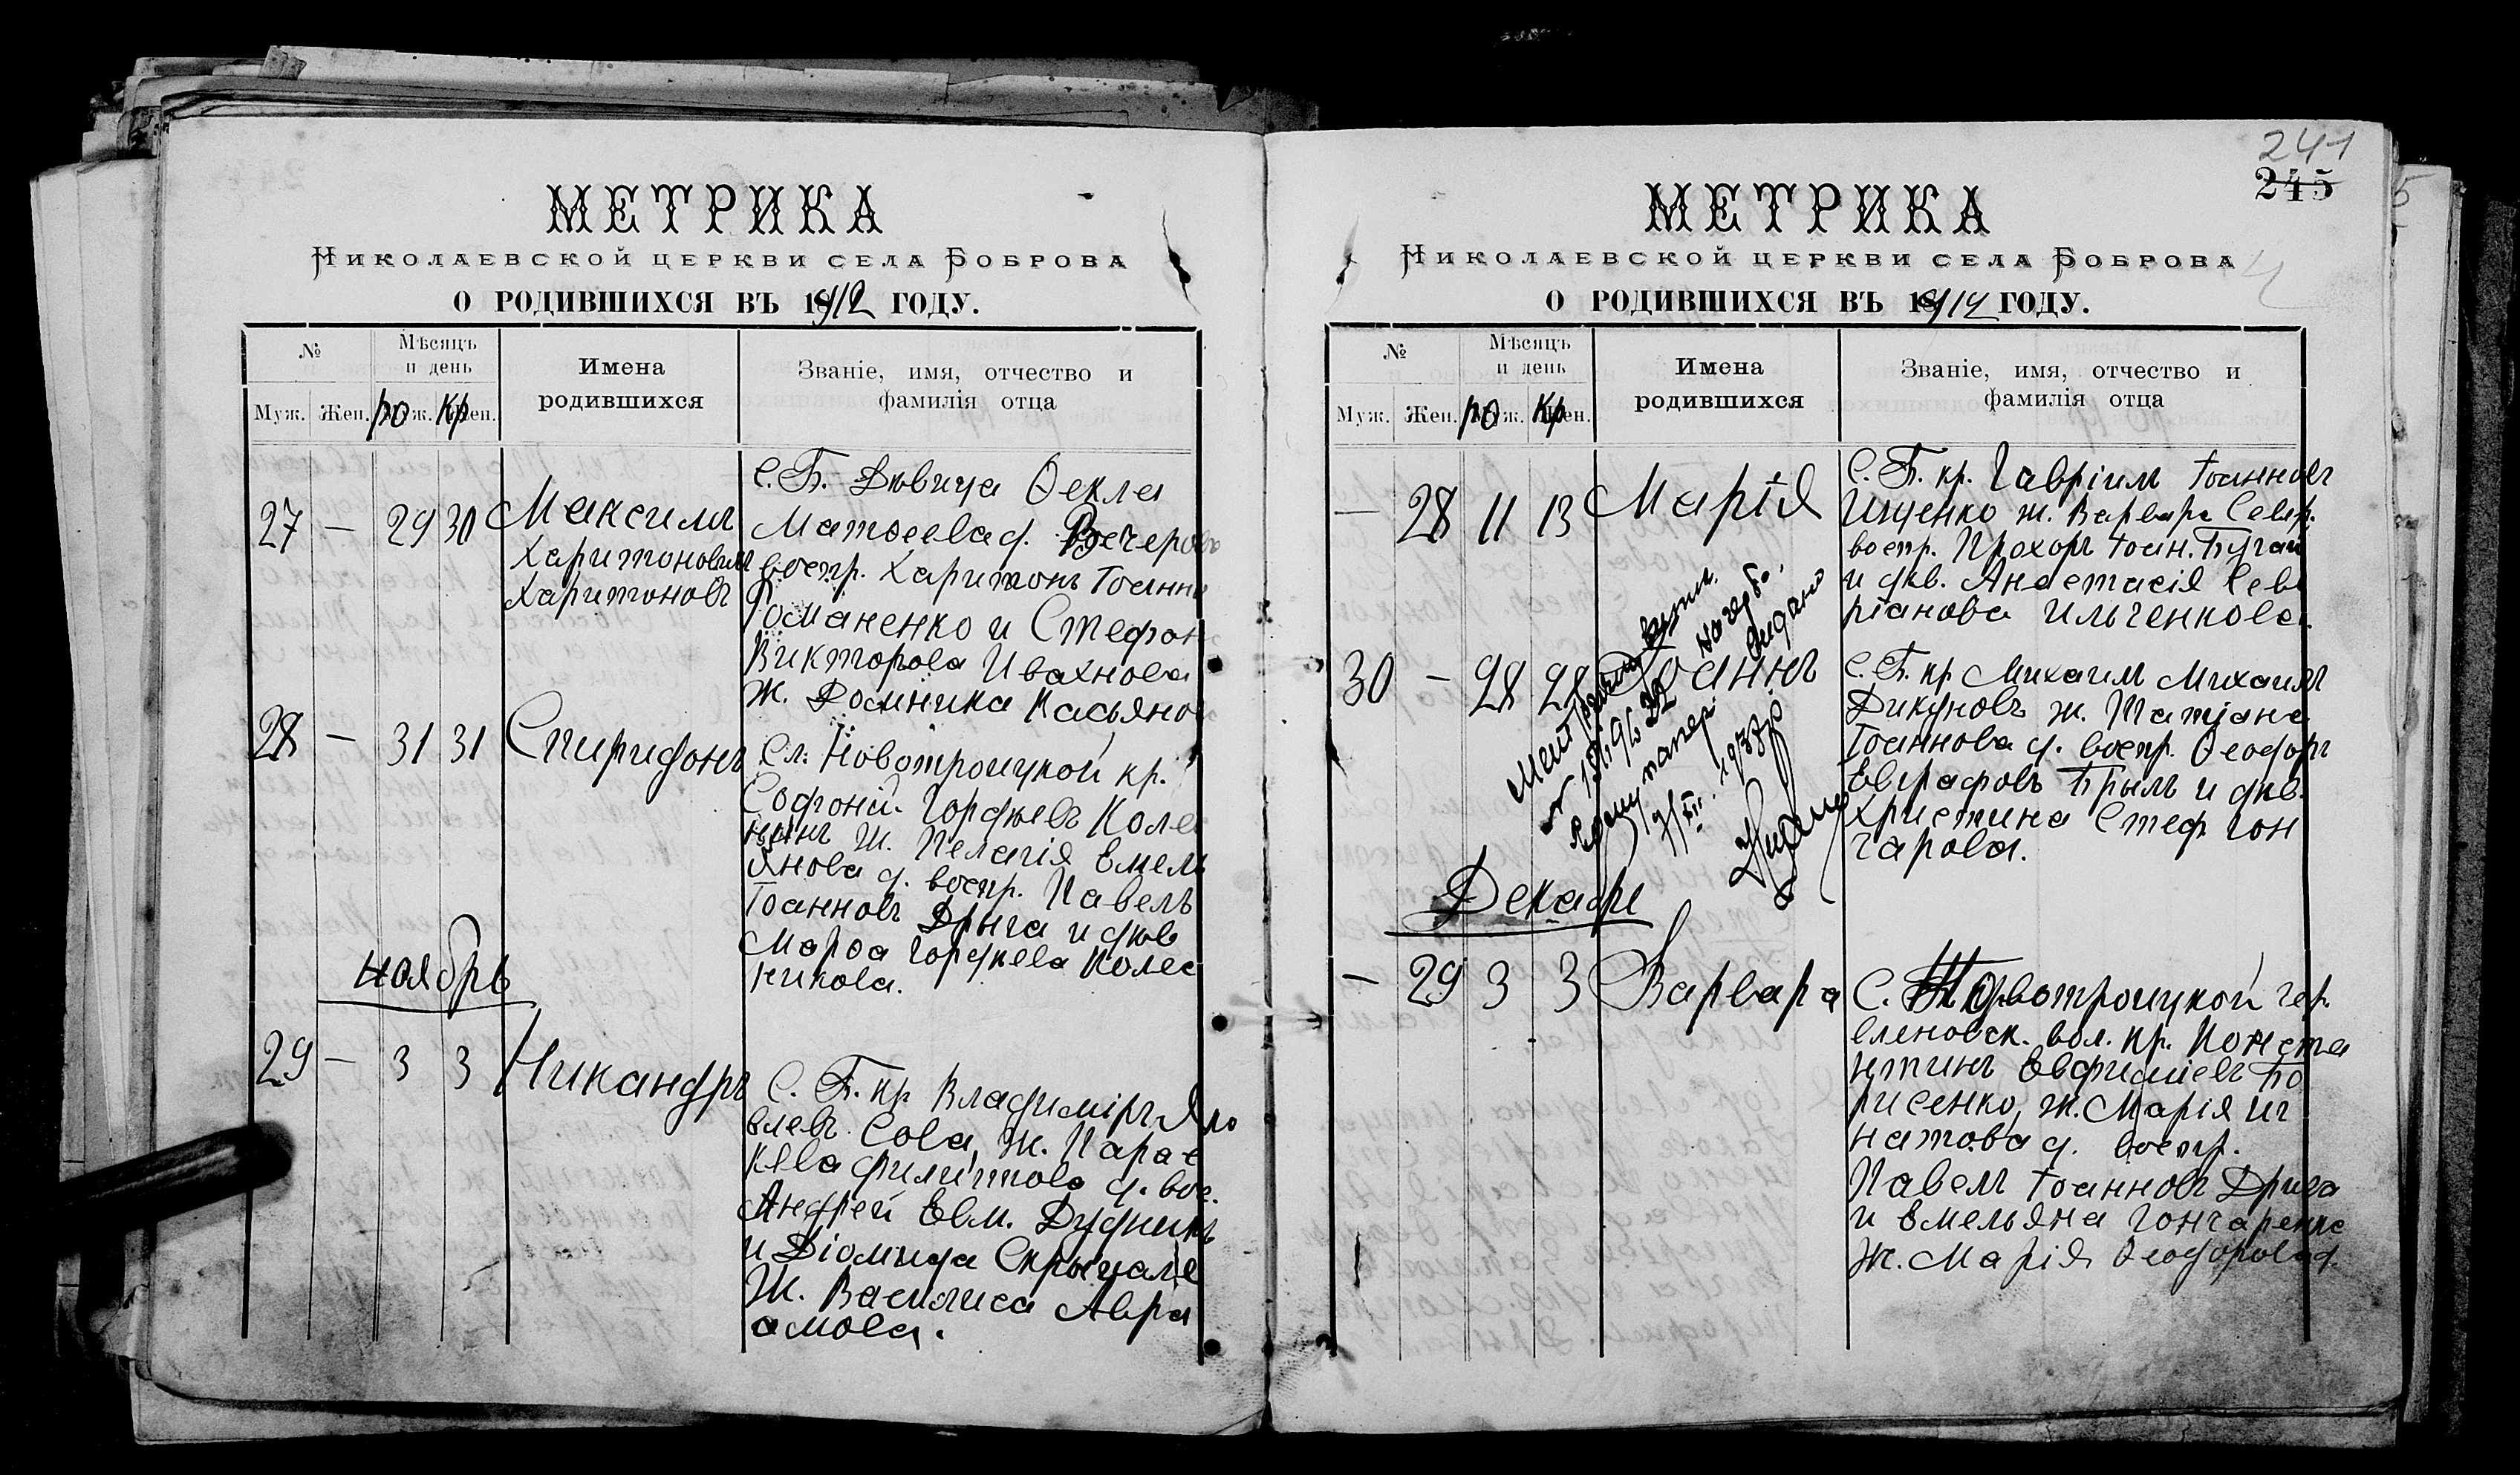 МЕТРИКА
Николаевской церкви села Боброва
О РОДИВШИХСЯ ВЪ 1912 ГОДУ.
№
Мѣсяцъ и день
Имена родившихся
Званіе, имя, отчество и фамилія отца
Муж. Жен. ро Муж. кр Жен.
27 — 29 30 Максимъ
Харитоновичъ
Харитоновъ
С. Б. Дѣвица Ѳекла
Матѳеева д. Вечерова
воспр. Харитонъ Іоанн
Романенко и Стефан
Викторова Ивахнова
Ж. Домника Касьяно
28 — 31 31 Спиридонъ
Сл. Новотроицкой кр.
Софоній Гордѣевъ Колес
Ж. Пелагія Емель
янова д. воспр. Павелъ
Іоанновъ Дрыга и дѣв
Марѳа Гордѣева Колес
никова.
Ноябрь
29 — 3 3 Никандръ
С. Б. кр Владиміръ Яко
влевъ Сова, Ж. Парас
кева Филиппова д. вос.
Андрей Евм. Дудникъ
и Діомида Скрыцаля
Ж. Василиса Авра
амова.
241
245
МЕТРИКА
Николаевской церкви села Боброва
О РОДИВШИХСЯ ВЪ 1912 ГОДУ.
№
Мѣсяцъ и день
Имена родившихся
Званіе, имя, отчество и фамилія отца
Муж. Жен. ро Муж. кр Жен.
— 28 11 13 Марія
С. Б. кр. Гавріилъ Іоанновъ
Ищенко ж. Варвара Севир.
воспр. Прохоръ Іоан. Бугай
и дѣв. Анастасія Севе
ріанова Ильченкова.
30 — 28 28 Іоаннъ
С. Б. кр Михаилъ Михаил
Дикуновъ ж. Татіана
Іоаннова д. воспр. Ѳеодоръ
Евграфовъ Брыль и дѣв.
Христина Стеф Гон
чарова.
видано
1933 р
Декабрь
— 29 3 3 Варвара
С. Новотроицкой чер
еленовск. вол. кр. Конста
нтинъ Евфиміевъ Бо
рисенко, ж. Марія Иг
натова д. воспр.
Павелъ Іоанновъ Дрига
и Емельяна Гончаренко
Ж. Марія Ѳеодорова д.